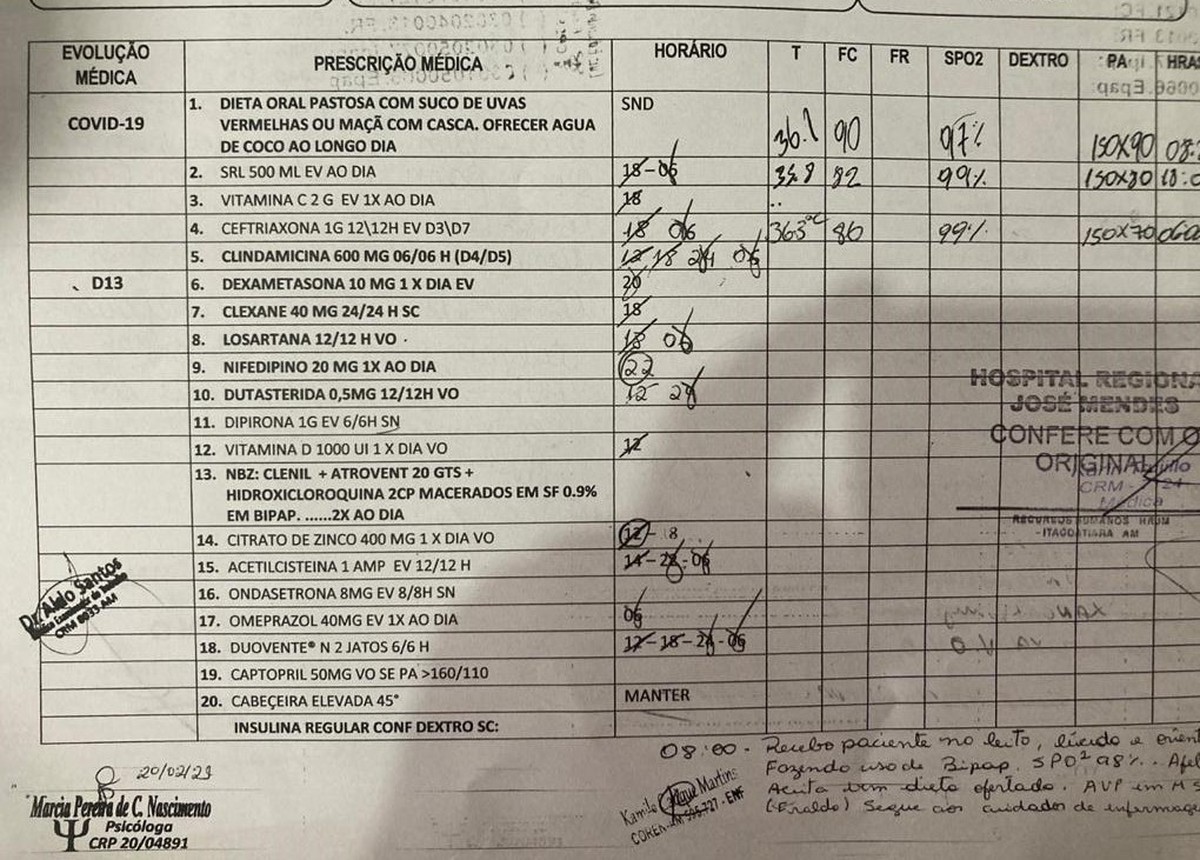 EVOLUÇÃO MÉDICA PRESCRIÇÃO MÉDICA HORÁRIO T FC FR SPO2 DEXTRO PA HRAS
COVID-19
1. DIETA ORAL PASTOSA COM SUCO DE UVAS SND
VERMELHAS OU MAÇÃ COM CASCA. OFRECER AGUA
DE COCO AO LONGO DIA 36.1 90 97% 150X90 08:
2. SRL 500 ML EV AO DIA 18-06 35.8 82 99% 150X80 18:0
3. VITAMINA C 2 G EV 1X AO DIA 18
4. CEFTRIAXONA 1G 12\12H EV D3\D7 18 06 363°C 86 99% 150X70 060
5. CLINDAMICINA 600 MG 06/06 H (D4/D5) 12 18 24 06
D13 6. DEXAMETASONA 10 MG 1 X DIA EV 20
7. CLEXANE 40 MG 24/24 H SC 18
8. LOSARTANA 12/12 H VO 18 06
9. NIFEDIPINO 20 MG 1X AO DIA 22
10. DUTASTERIDA 0,5MG 12/12H VO 12 24
11. DIPIRONA 1G EV 6/6H SN
12. VITAMINA D 1000 UI 1 X DIA VO 12
13. NBZ: CLENIL + ATROVENT 20 GTS +
HIDROXICLOROQUINA 2CP MACERADOS EM SF 0.9%
EM BIPAP. ......2X AO DIA
14. CITRATO DE ZINCO 400 MG 1 X DIA VO 12 - 18
15. ACETILCISTEINA 1 AMP EV 12/12 H 14 - 22 - 06
16. ONDASETRONA 8MG EV 8/8H SN
17. OMEPRAZOL 40MG EV 1X AO DIA 06
18. DUOVENTE® N 2 JATOS 6/6 H 12 - 18 - 24 - 06
19. CAPTOPRIL 50MG VO SE PA >160/110
20. CABEÇEIRA ELEVADA 45° MANTER
INSULINA REGULAR CONF DEXTRO SC:
HOSPITAL REGIONA
JOSÉ MENDES
CONFERE COM O
ORIGINAL
CRM - 24
Médica
RECURSOS HUMANOS HRJM
-ITACOATIARA AM
Dr. Aldo Santos
CRM 8033 AM
08:00 - Recebo paciente no leito, lúcido e orient
Fazendo uso de Bipap. SPO² 98%. Afe
Aceita bem dieta ofertada. AVP em MS
(Eraldo) Segue aos cuidados de enfermage
Kamila Martins
COREN-AM 595.727 - ENF
20/02/21
Marcia Pereira de C. Nascimento
Psicóloga
CRP 20/04891